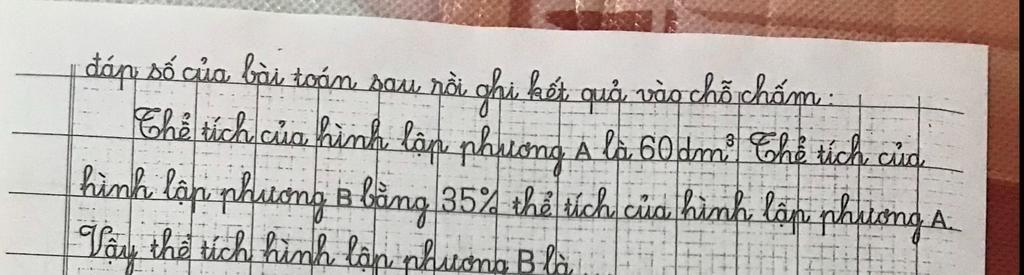 đáp số của bài toán sau rồi ghi kết quả vào chỗ chấm:
Thể tích của hình lập phương A là 60 dm³ Thể tích của
hình lập phương B bằng 35% thể tích của hình lập phương A.
Vậy thể tích hình lập phương B là